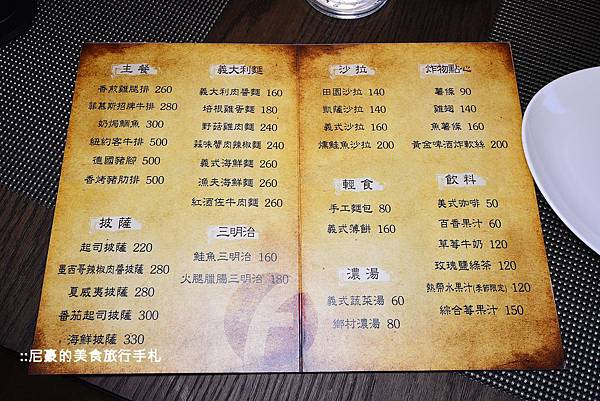 主餐
香煎雞腿排 260
菲慕斯招牌牛排 280
奶焗鯛魚 300
紐約客牛排 500
德國豬腳 500
香烤豬肋排 500
披薩
起司披薩 220
墨西哥辣椒肉醬披薩 280
夏威夷披薩 280
番茄起司披薩 300
海鮮披薩 330
義大利麵
義大利肉醬麵 160
培根雞蛋麵 180
野菇雞肉麵 240
蒜味蟹肉辣椒麵 240
義式海鮮麵 260
漁夫海鮮麵 260
紅酒佐牛肉麵 260
三明治
鮭魚三明治 160
火腿臘腸三明治 180
沙拉
田園沙拉 140
凱薩沙拉 140
義式沙拉 160
燻鮭魚沙拉 200
輕食
手工麵包 80
義式薄餅 160
濃湯
義式蔬菜湯 60
鄉村濃湯 80
炸物點心
薯條 90
雞翅 140
魚薯條 160
黃金啤酒炸軟絲 200
飲料
美式咖啡 50
百香果汁 60
草莓牛奶 120
玫瑰鹽綠茶 120
熱帶水果汁(季節限定) 120
綜合莓果汁 150
::尼豪的美食旅行手札